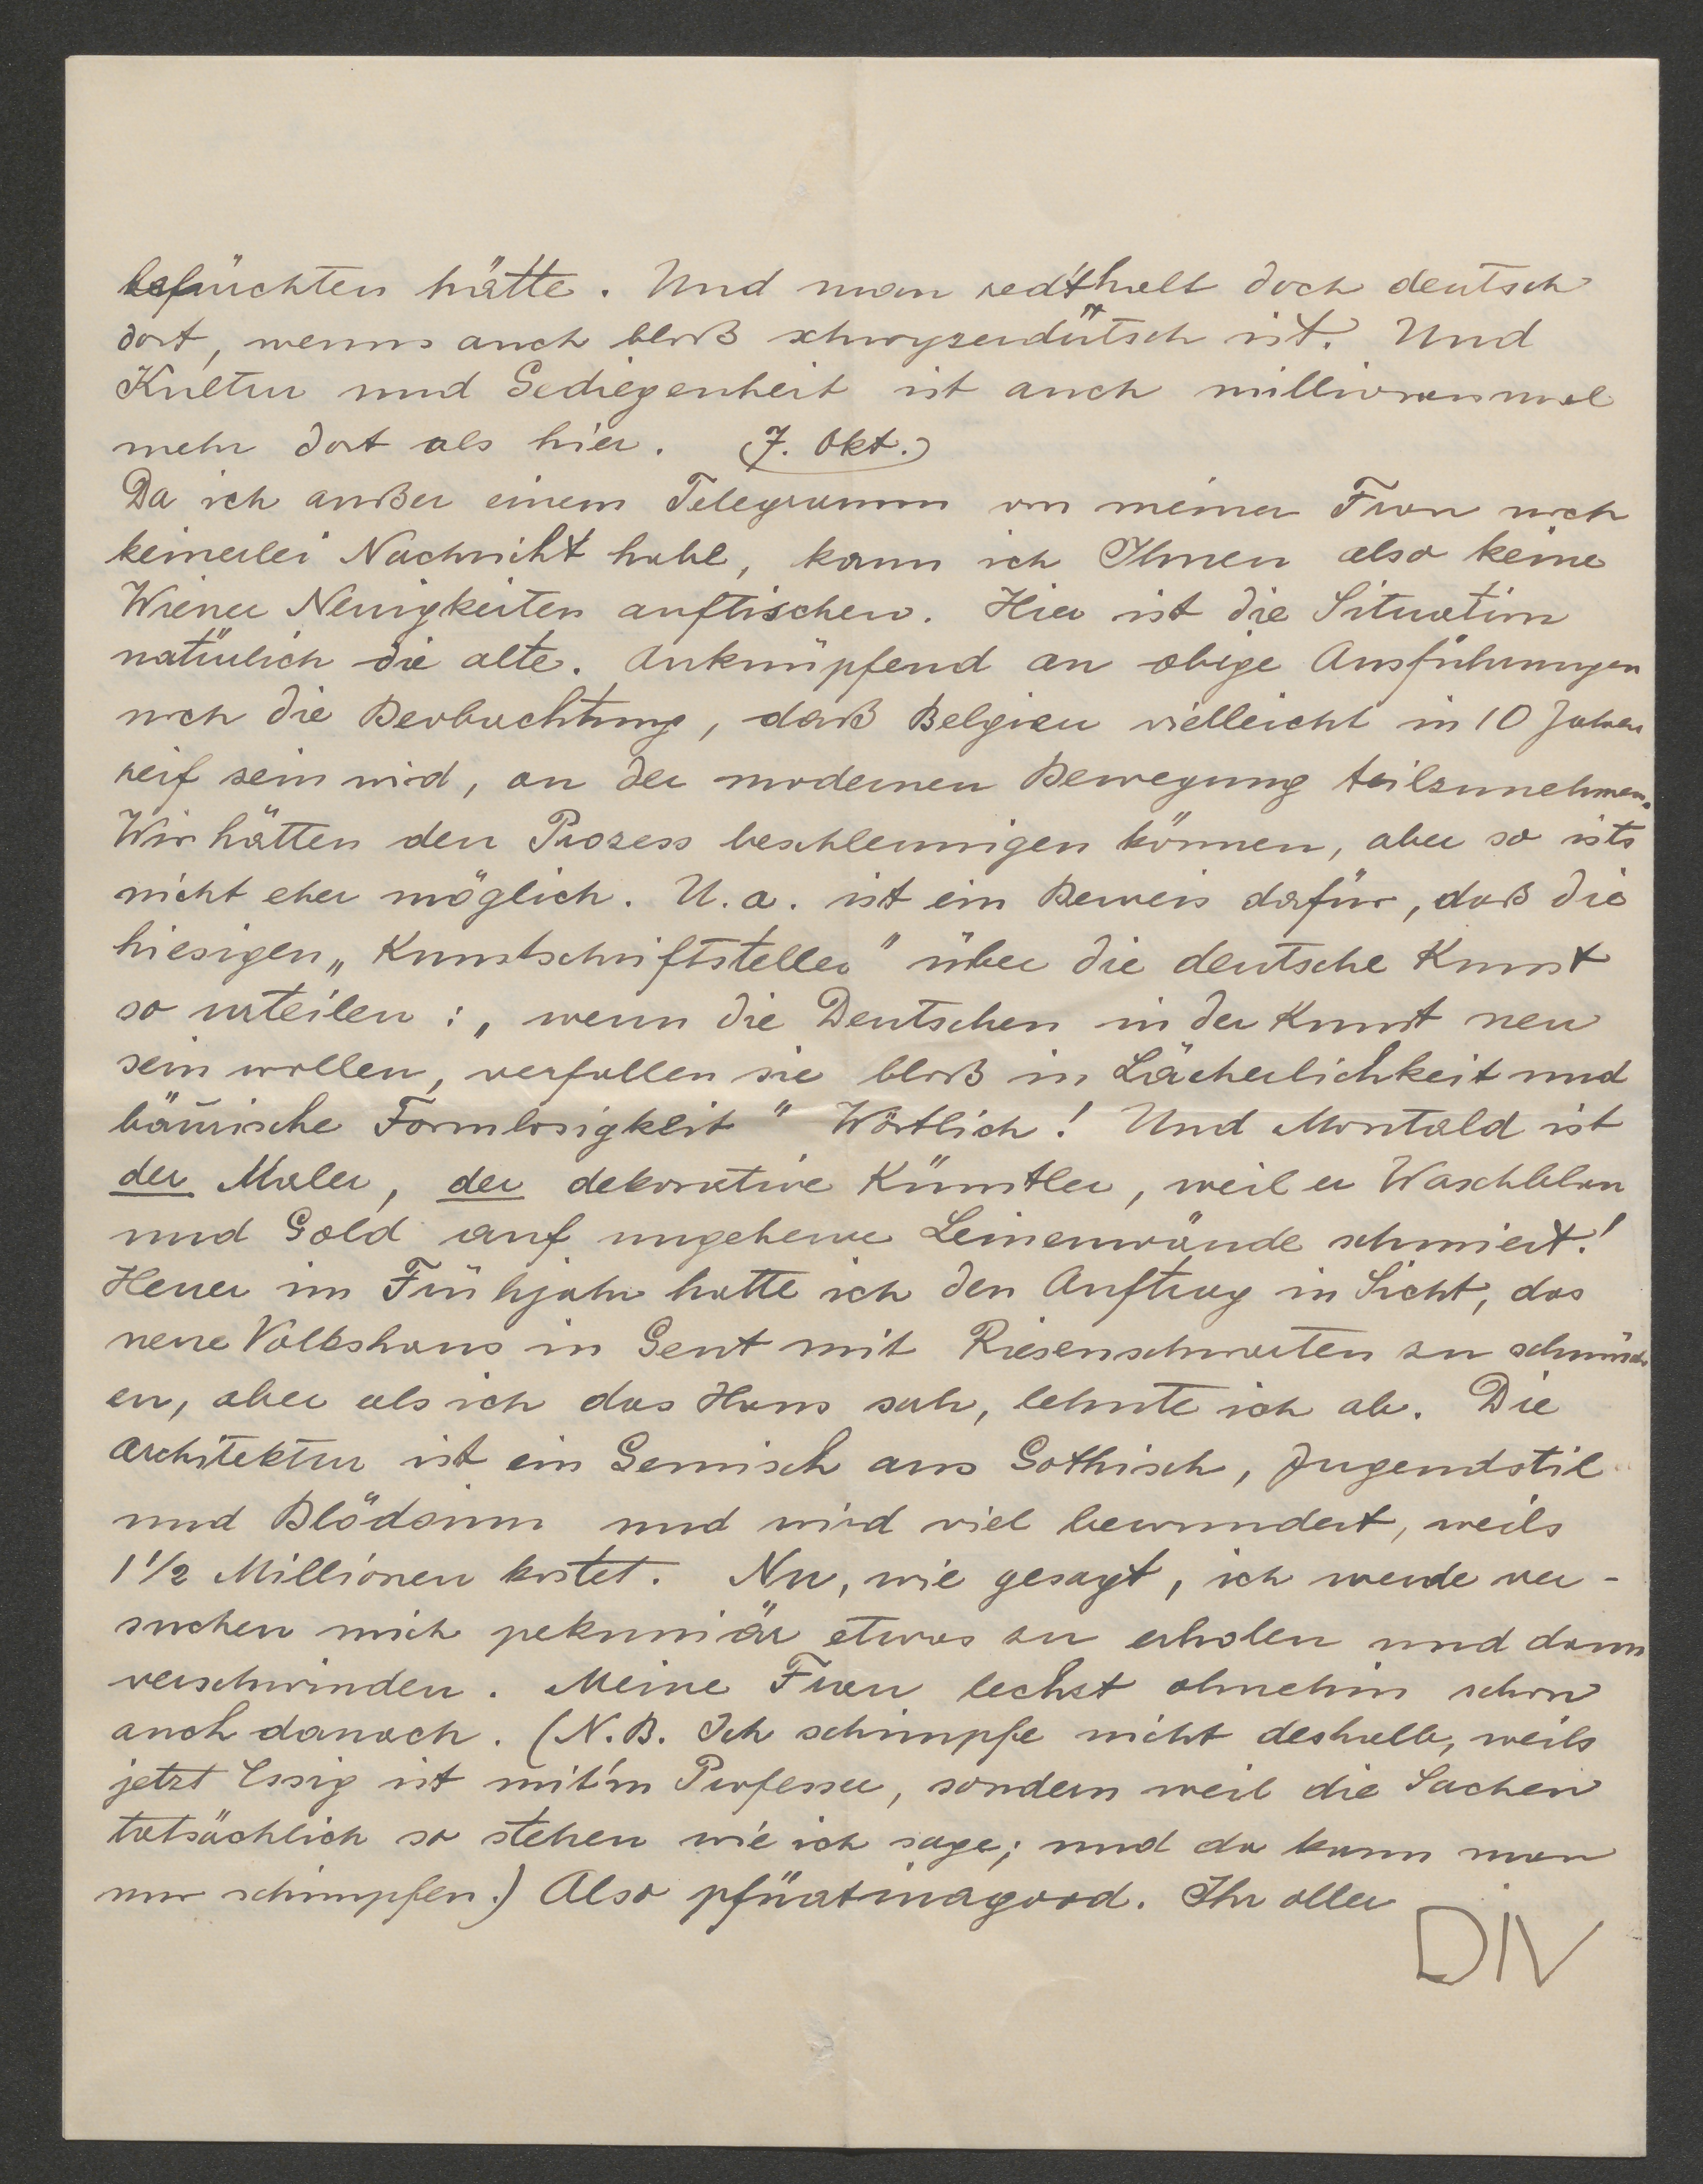 befürchten hätte. Und man redt halt doch deutsch
dort, wenns auch bloß schwyzerdütsch ist. Und
Kultur und Gediegenheit ist auch millionenmal
mehr dort als hier. (7. Okt.)
Da ich außer einem Telegramm von meiner Frau noch
keinerlei Nachricht habe, kann ich Ihnen also keine
Wiener Neuigkeiten auftischen. Hier ist die Situation
natürlich die alte. Anknüpfend an obige Ausführungen
noch die Beobachtung, daß Belgien vielleicht in 10 Jahren
reif sein wird, an der modernen Bewegung teilzunehmen.
Wir hätten den Prozess beschleunigen können, aber so ists
nicht eher möglich. U.a. ist ein Beweis dafür, daß die
hiesigen „Kunstschriftsteller" über die deutsche Kunst
so urteilen: „wenn die Deutschen in der Kunst neu
sein wollen, verfallen sie bloß in Lächerlichkeit und
bäurische Formlosigkeit" Wörtlich! Und Montald ist
der Maler, der dekorative Künstler, weil er Waschblau
und Gold auf ungeheure Leinenwände schmiert!
Heuer im Frühjahr hatte ich den Auftrag in Sicht, das
neue Volkshaus in Gent mit Riesenschwarten zu schmück
en, aber als ich das Haus sah, lehnte ich ab. Die
Architektur ist ein Gemisch aus Gothisch, Jugendstil
und Blödsinn und wird viel bewundert, weils
1 1/2 Millionen kostet. Nu, wie gesagt, ich werde ver-
suchen mich pekuniär etwas zu erholen und dann
verschwinden. Meine Frau lechzt ohnehin schon
auch danach. (N.B. Ich schimpfe nicht deshalb, weils
jetzt Essig ist mit'm Professor, sondern weil die Sachen
tatsächlich so stehen wie ich sage; und da kann man
nur schimpfen.) Also pfüatinagood. Ihr oller
DIV